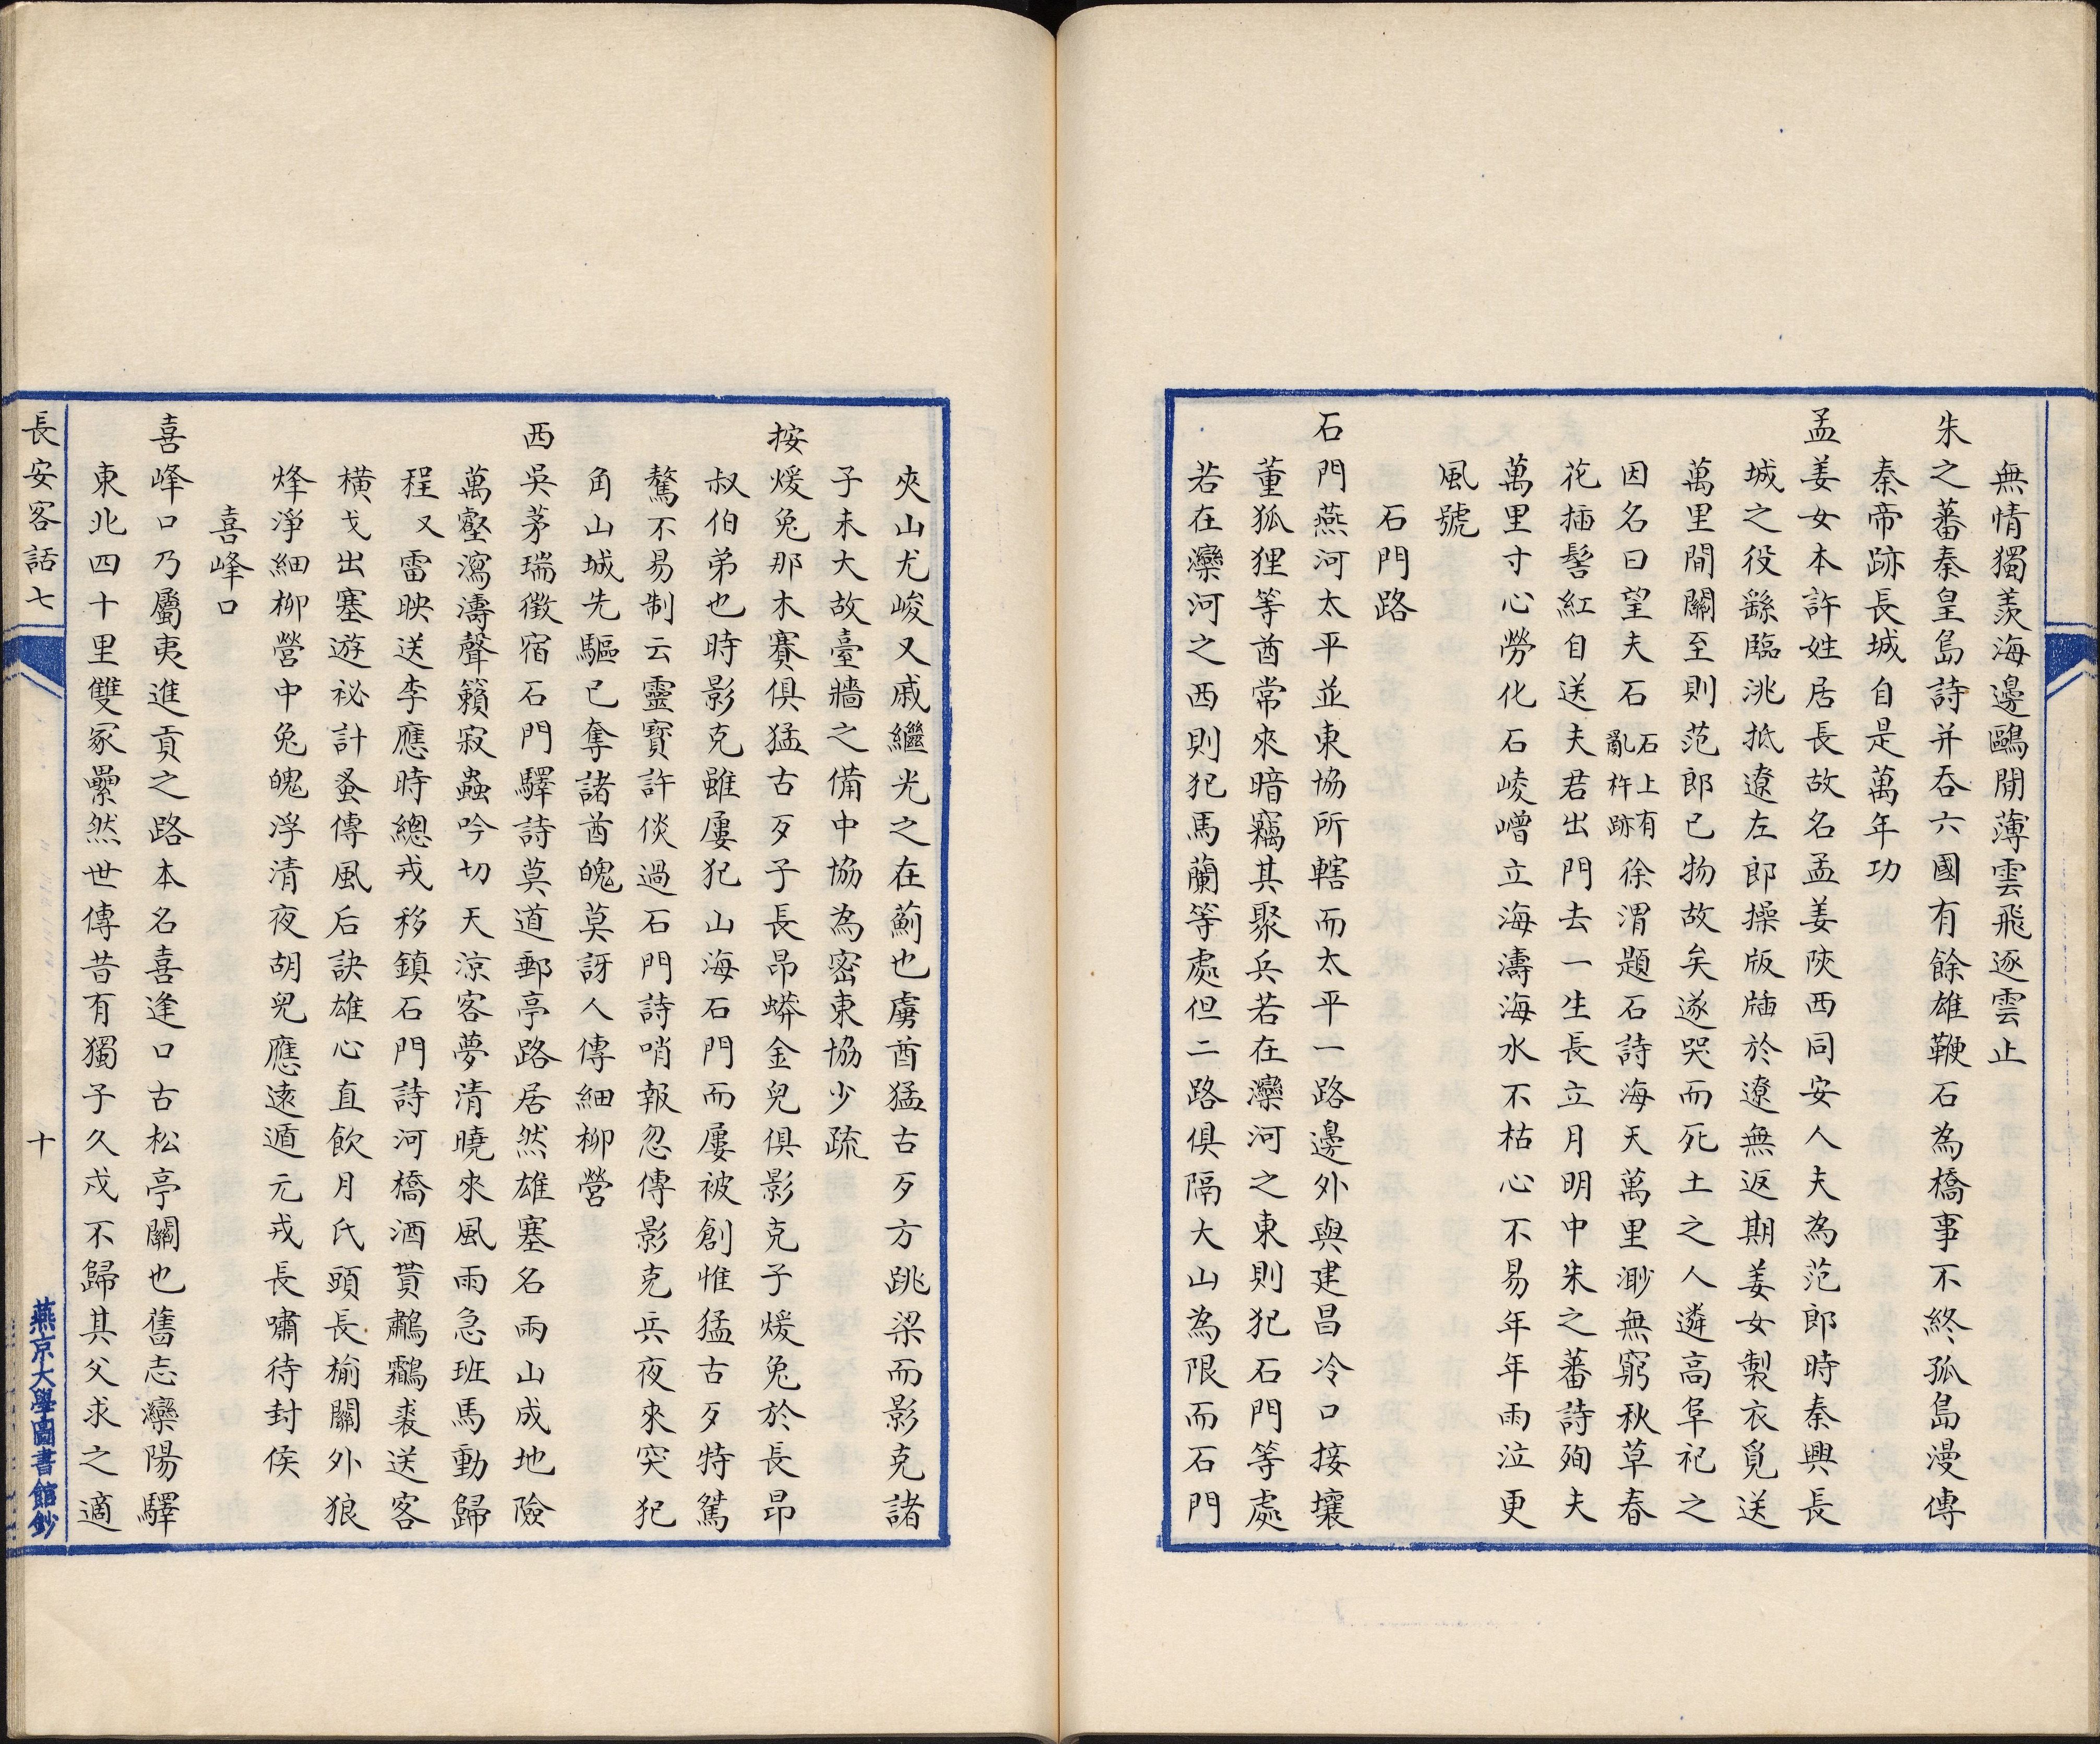 無情獨羨海邊鷗閒薄雲飛逐雲止
朱之蕃秦皇島詩并吞六國有餘雄鞭石為橋事不終孤島漫傳
秦帝跡長城自是萬年功
孟姜女本許姓居長故名孟姜陝西同安人夫為范郎時秦興長
城之役繇臨洮抵遼左郎操版牐於遼無返期姜女製衣覓送
萬里間關至則范郎已物故矣遂哭而死土之人遴高阜祀之
因名曰望夫石石上有亂杵跡徐渭題石詩海天萬里渺無窮秋草春
花插髻紅自送夫君出門去一生長立月明中朱之蕃詩殉夫
萬里寸心勞化石崚嶒立海濤海水不枯心不易年年雨泣更
風號
石門路
石門燕河太平並東協所轄而太平一路邊外與建昌冷口接壤
董狐狸等酋常來暗竊其聚兵若在灤河之東則犯石門等處
若在灤河之西則犯馬蘭等處但二路俱隔大山為限而石門
夾山尤峻又戚繼光之在薊也虜酋猛古歹方跳梁而影克諸
子未大故臺牆之備中協為密東協少疏
按煖兔那木賽俱猛古歹子長昂蟒金兒俱影克子煖兔於長昂
叔伯弟也時影克雖屢犯山海石門而屢被創惟猛古歹特篤
驁不易制云靈寶許倓過石門詩哨報忽傳影克兵夜來突犯
角山城先驅已奪諸酋魄莫訝人傳細柳營
西吳茅瑞徵宿石門驛詩莫道郵亭路居然雄塞名兩山成地險
萬壑瀉濤聲籟寂蟲吟切天涼客夢清曉來風雨急班馬動歸
程又雷映送李應時總戎移鎮石門詩河橋酒貰鷫鸘裘送客
橫戈出塞遊祕計蚤傳風后訣雄心直飲月氏頭長榆關外狼
烽淨細柳營中兔魄浮清夜胡兒應遠遁元戎長嘯待封侯
喜峰口
喜峰口乃屬夷進貢之路本名喜逢口古松亭關也舊志灤陽驛
東北四十里雙冢纍然世傳昔有獨子久戍不歸其父求之適
長安客話七
十
燕京大學圖書館鈔